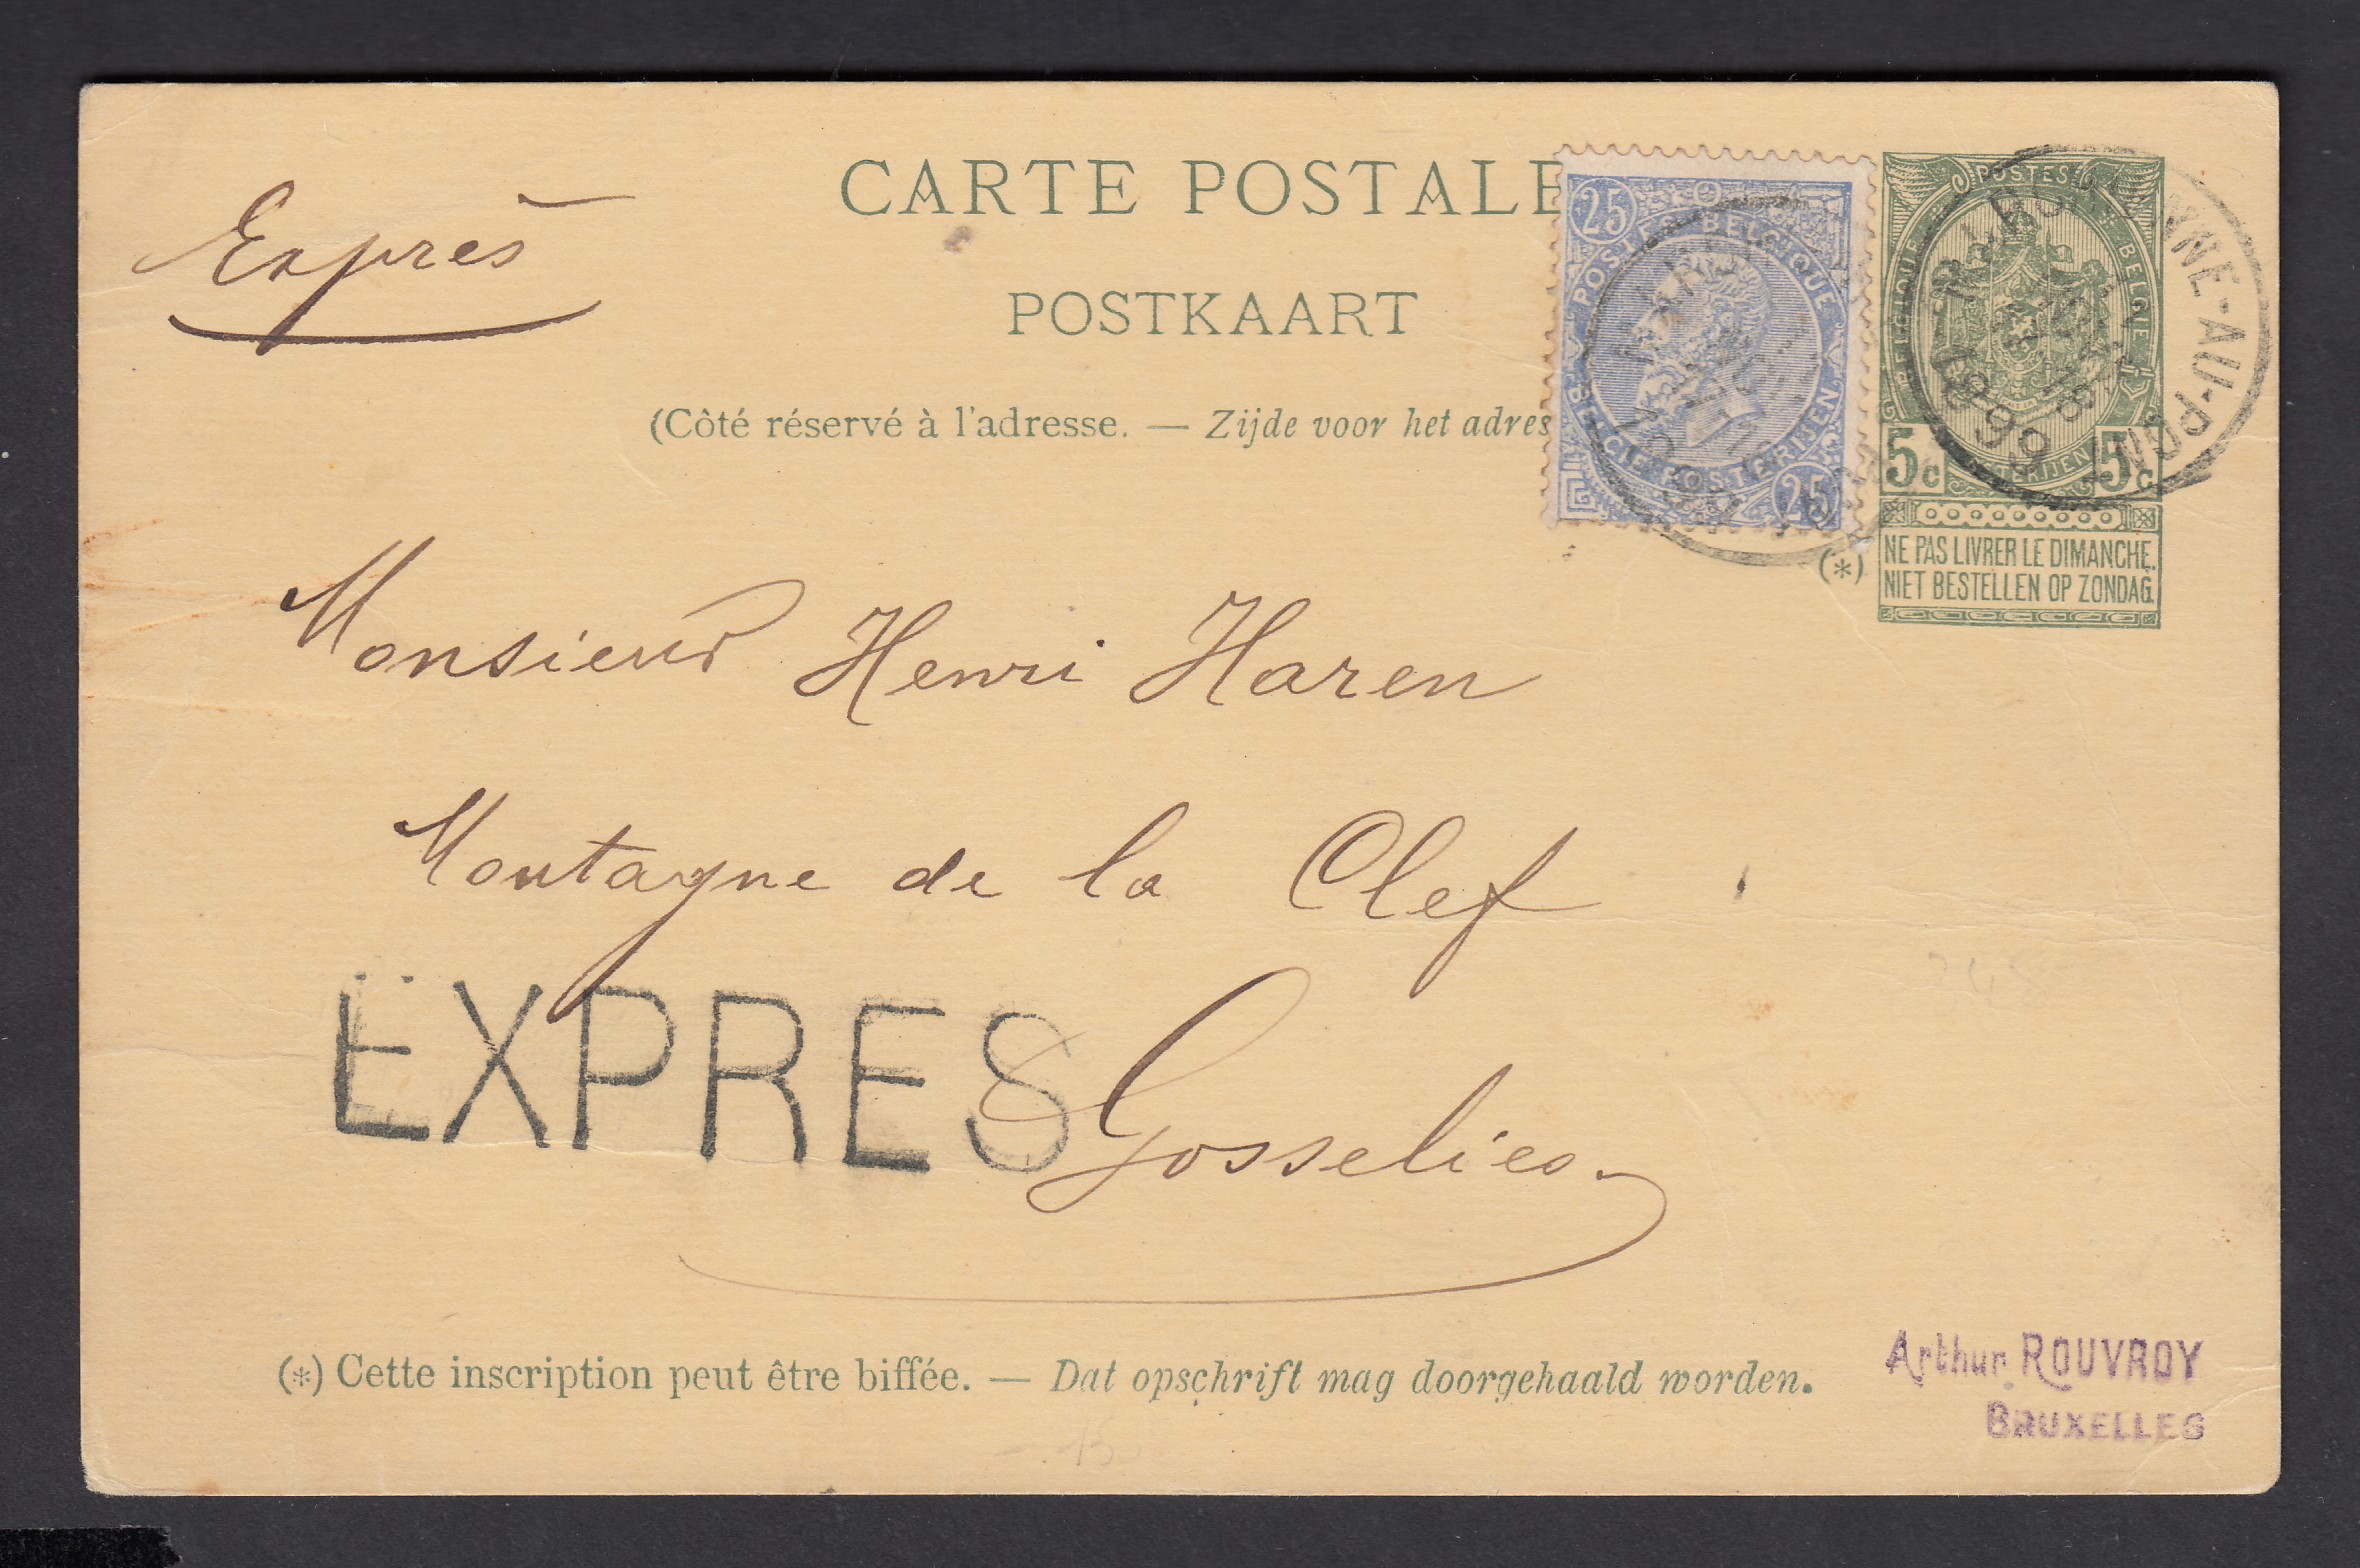 Exprès
CARTE POSTALE
POSTKAART
(Côté réservé à l'adresse. — Zijde voor het adres
25
POSTES BELGIQUE
BELGIE POSTERIJEN
25
POSTES
BELGIQUE BELGIE
POSTERIJEN
5c 5c
(*) NE PAS LIVRER LE DIMANCHE.
NIET BESTELLEN OP ZONDAG.
MARCHIENNE-AU-PONT
1899
Monsieur Henri Haren
Montagne de la Clef
EXPRES
Gosselies.
(*) Cette inscription peut être biffée. — Dat opschrift mag doorgehaald worden.
Arthur ROUVROY
BRUXELLES